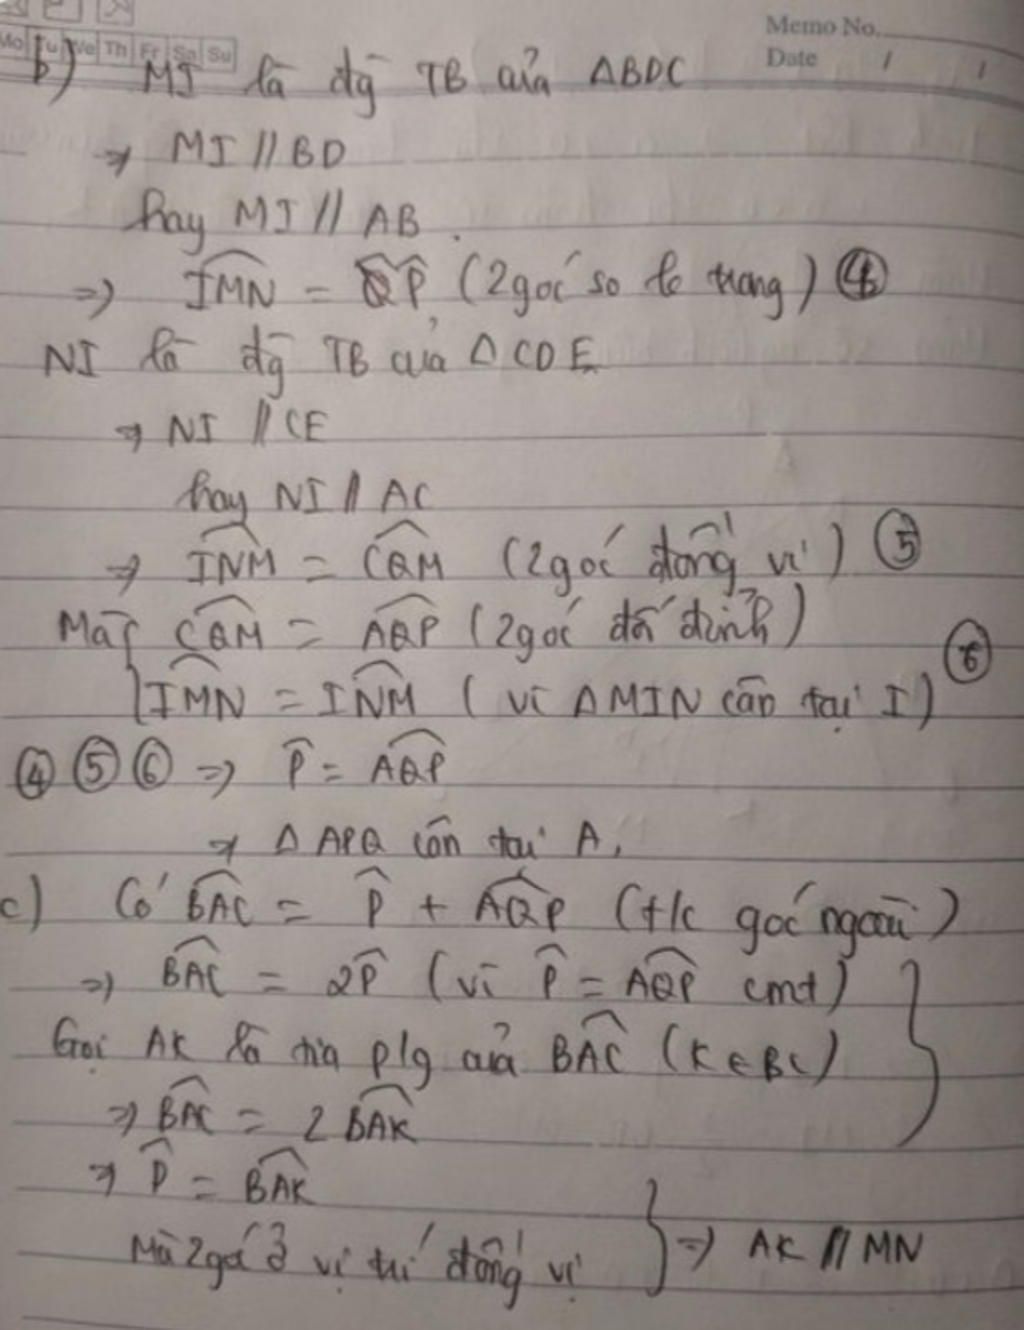 Memo No.
Mo Tu We Th Fr Sa Su
Date / /
b) MI là đg TB của ΔBDC
⇒ MI // BD
hay MI // AB.
⇒ \widehat{IMN} = \widehat{P} (2 góc so le trong) ④
NI là đg TB của Δ CDE
⇒ NI // CE
hay NI // AC
⇒ \widehat{INM} = \widehat{CQM} (2 góc đồng vị) ⑤
Mặt \widehat{CQM} = \widehat{AQP} (2 góc đđ đỉnh)
\widehat{IMN} = \widehat{INM} (vì ΔMIN cân tại I) ⑥
④ ⑤ ⑥ ⇒ \widehat{P} = \widehat{AQP}
⇒ Δ APQ cân tại A.
c) Có \widehat{BAC} = \widehat{P} + \widehat{AQP} (t/c góc ngoài)
⇒ \widehat{BAC} = 2\widehat{P} (vì \widehat{P} = \widehat{AQP} cmt)
Gọi AK là tia p/g của \widehat{BAC} (K ∈ BC)
⇒ \widehat{BAC} = 2 \widehat{BAK}
⇒ \widehat{P} = \widehat{BAK}
Mà 2 góc ở vị trí đồng vị ⇒ AK // MN